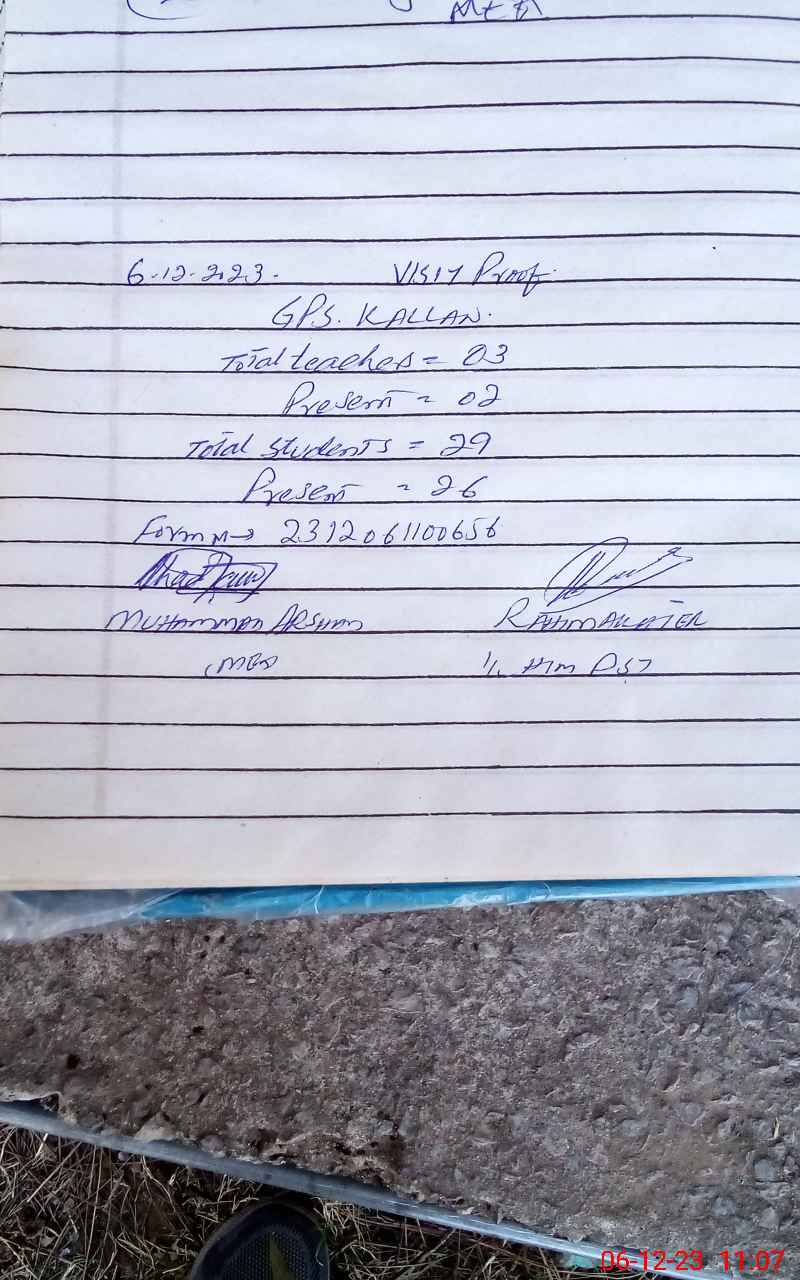 MEA
6.12.2023. Visit Proof.
GPS. KALLAN.
Total teaches = 03
Present = 02
Total students = 29
Present = 26
Form N → 2312061100656
MUHAMMAD ARSHAD
(MEA)
1/c HM PST
06-12-23 11:07